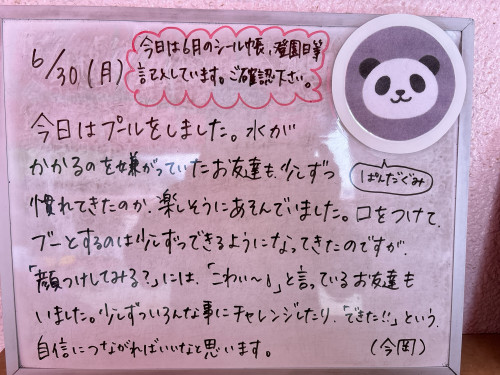 6/30(月)
今日は6月のシール帳、登園日等
記入しています。ご確認下さい。
今日はプールをしました。水が
かかるのを嫌がっていたお友達も、少しずつ
ぱんだぐみ
慣れてきたのか、楽しそうにあそんでいました。口をつけて、
ブーとするのは少しずつできるようになってきたのですが、
「顔つけしてみる?」には、「こわい〜!」と言っているお友達も
いました。少しずついろんな事にチャレンジしたり、「できた!!」という、
自信につながればいいなと思います。
(今岡)